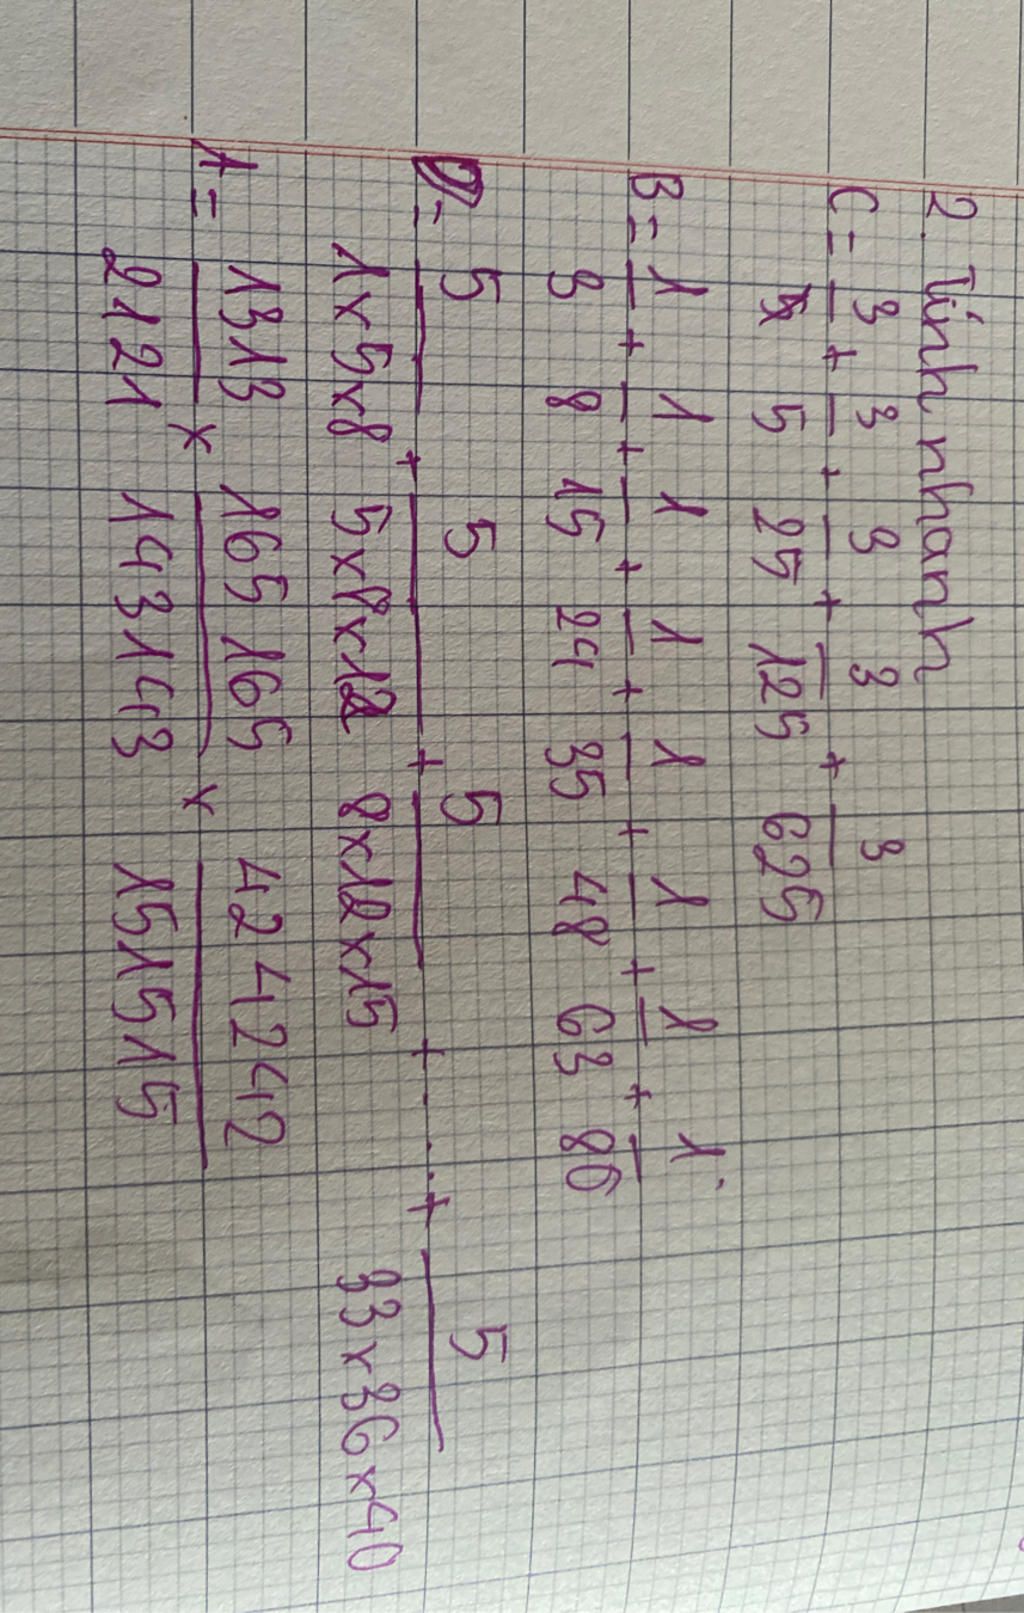 2. Tính nhanh
C = 3/5 + 3/25 + 3/125 + 3/625
B = 1/3 + 1/8 + 1/15 + 1/24 + 1/35 + 1/48 + 1/63 + 1/80
D = 5/(1x5x8) + 5/(5x8x12) + 5/(8x12x15) + ... + 5/(33x36x40)
A = 1313/2121 x 165165/143143 x 424242/151515